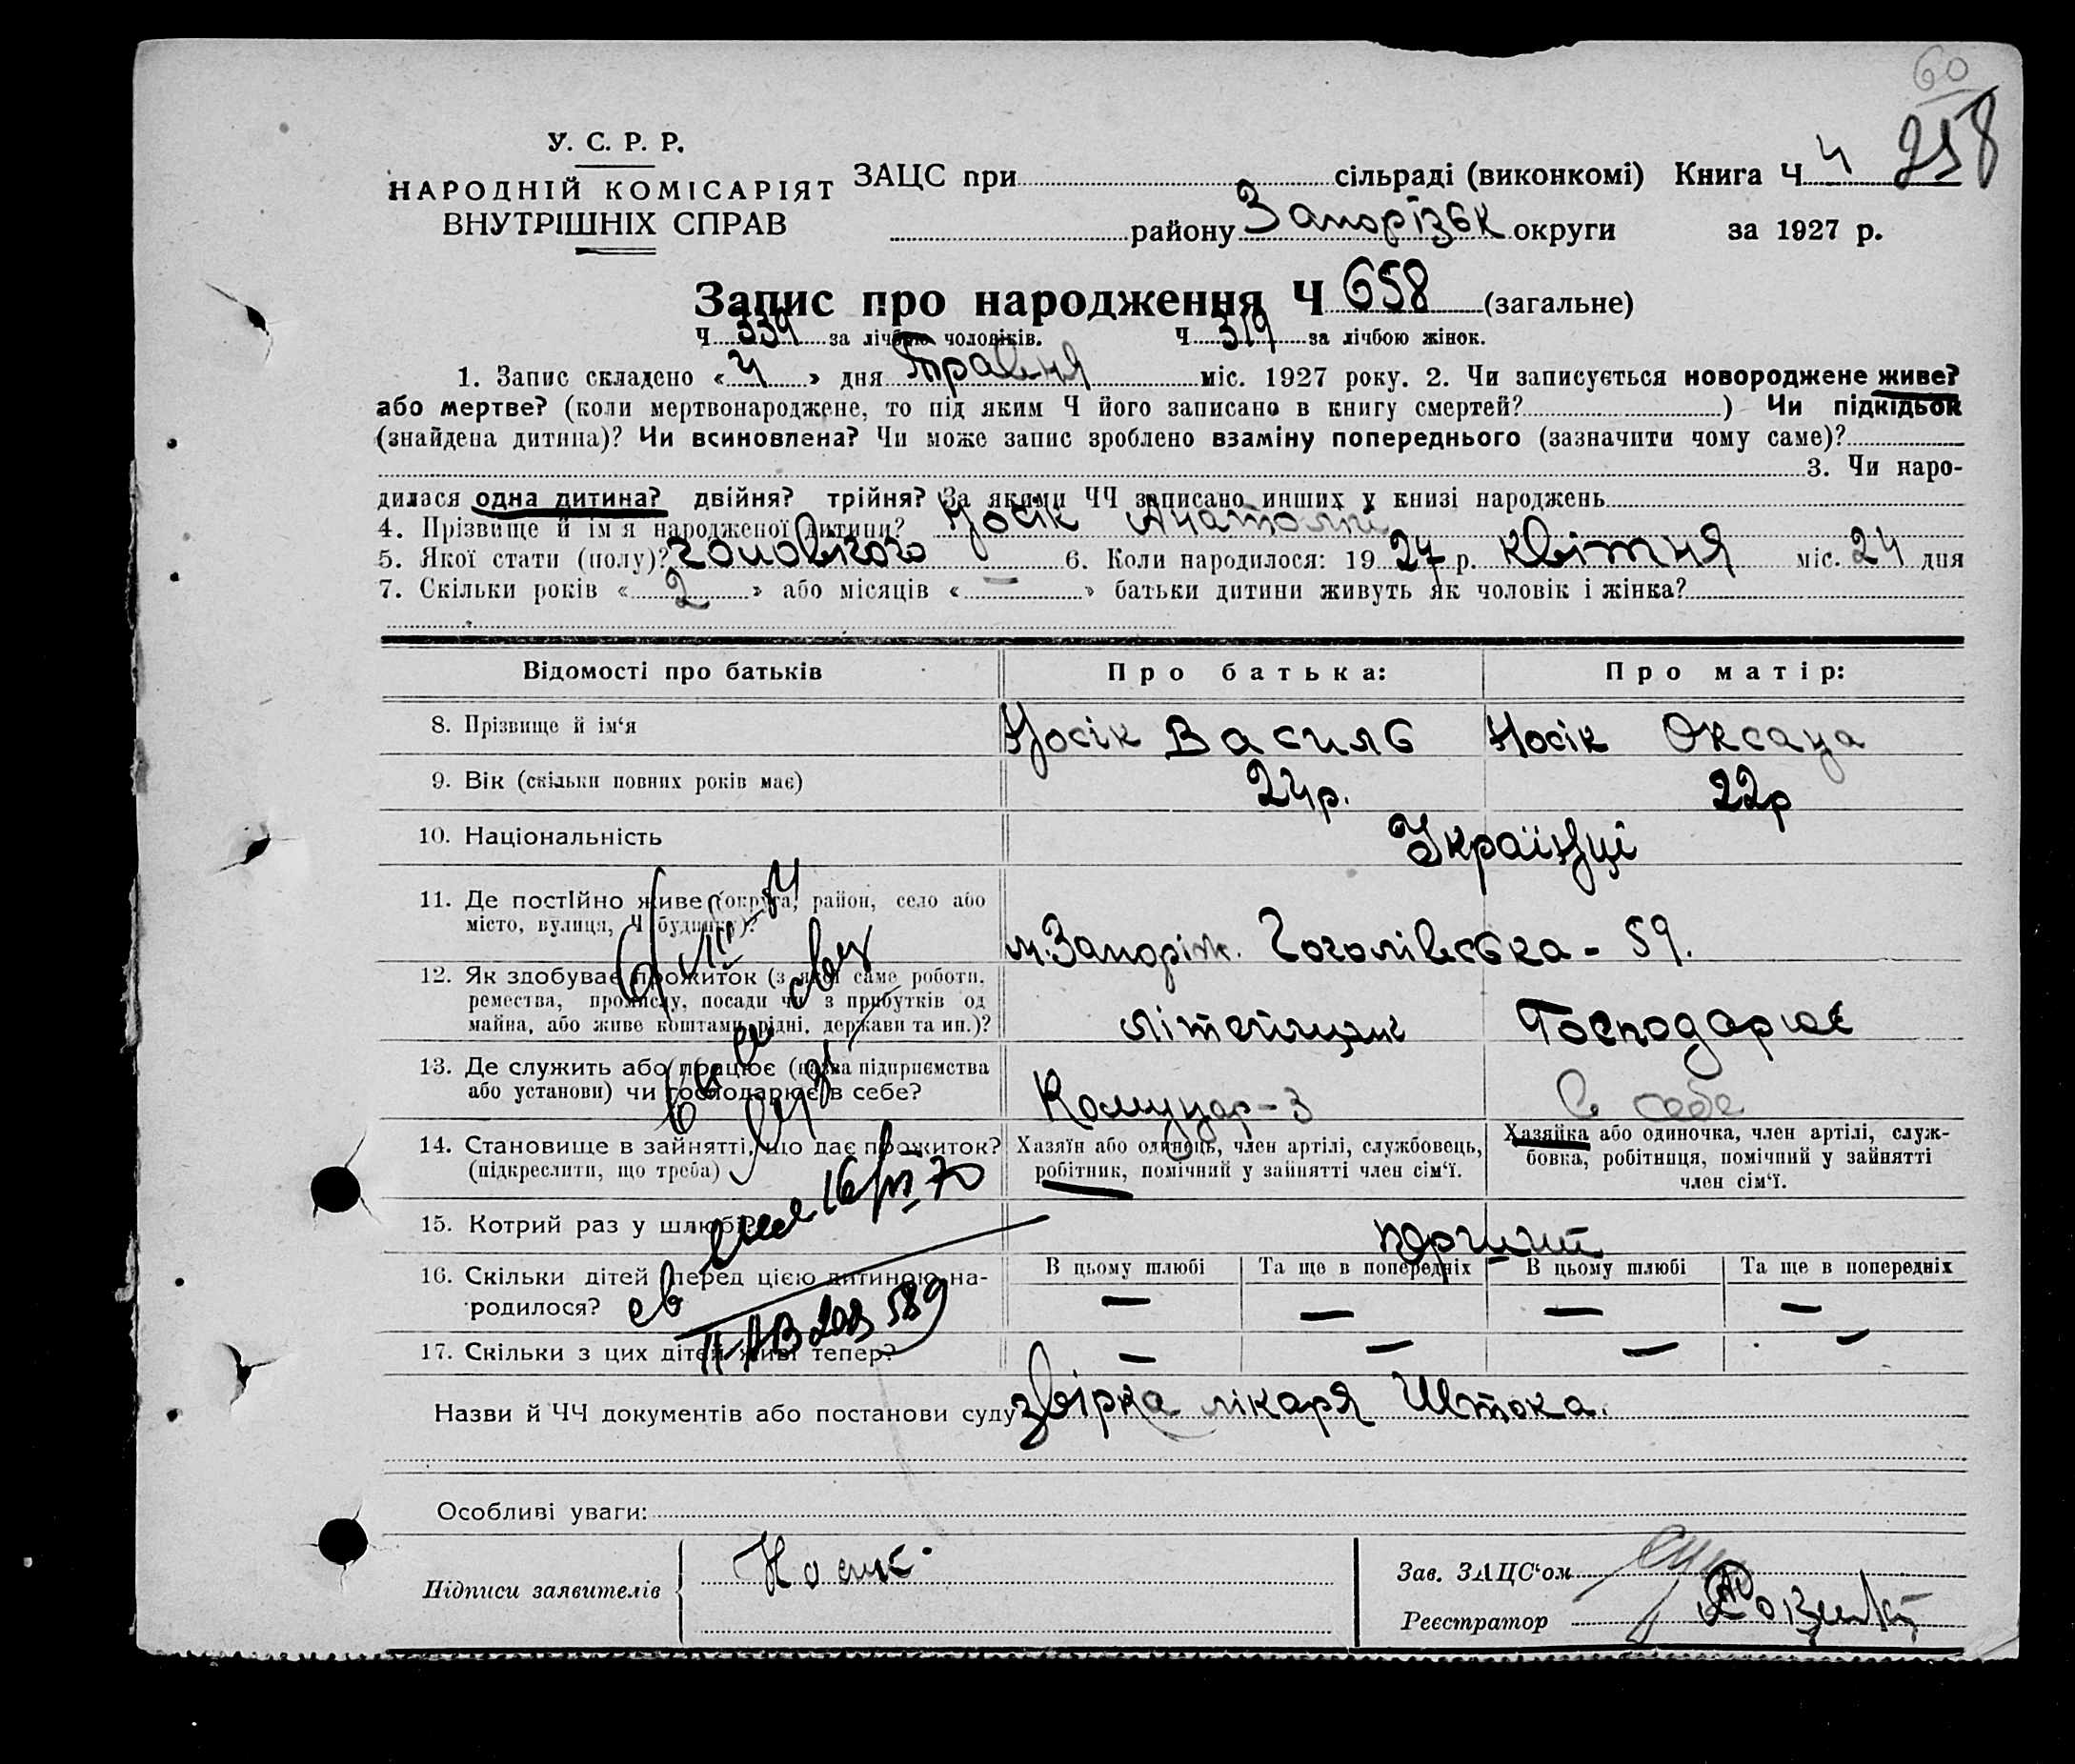 60
258
У. С. Р. Р.
НАРОДНІЙ КОМІСАРІЯТ
ВНУТРІШНІХ СПРАВ
ЗАЦС при сільраді (виконкомі) Книга Ч 4
району Запорізьк округи за 1927 р.
Запис про народження Ч 658 (загальне)
Ч 339 за лічбою чоловіків. Ч 319 за лічбою жінок.
1. Запис складено «4» дня Травня міс. 1927 року. 2. Чи записується новороджене живе?
або мертве? (коли мертвонароджене, то під яким Ч його записано в книгу смертей? ) Чи підкідьок
(знайдена дитина)? Чи всиновлена? Чи може запис зроблено взаміну попереднього (зазначити чому саме)?
3. Чи наро-
дилася одна дитина? двійня? трійня? За якими ЧЧ записано инших у книзі народжень
4. Прізвище й ім'я народженої дитини? Носік Анатолій
5. Якої стати (полу)? чоловічого 6. Коли народилося: 1927 р. квітня міс. 24 дня
7. Скільки років «2» або місяців «—» батьки дитини живуть як чоловік і жінка?
Відомості про батьків Про батька: Про матір:
8. Прізвище й ім‘я Носік Василь Носік Оксана
9. Вік (скільки повних років має) 24р. 22р
10. Національність Українці
11. Де постійно живе (округа, район, село або
місто, вулиця, Ч будинку)? м. Запоріж. Гоголівська - 59.
12. Як здобуває прожиток (з якої саме роботи,
ремества, промислу, посади чи з прибутків од
майна, або живе коштами рідні, держави та ин.)? літейщик Господарює
13. Де служить або працює (назва підприємства
або установи) чи господарює в себе? Комунар-З в себе
14. Становище в зайнятті, що дає прожиток?
(підкреслити, що треба)
Хазяїн або одинець, член артілі, службовець,
робітник, помічний у зайнятті член сім‘ї.
Хазяйка або одиночка, член артілі, служ-
бовка, робітниця, помічний у зайнятті
член сім‘ї.
15. Котрий раз у шлюбі?
16. Скільки дітей перед цією дитиною на-
родилося?
В цьому шлюбі Та ще в попередніх В цьому шлюбі Та ще в попередніх
— — — —
17. Скільки з цих дітей живі тепер? — — — —
16/VI 70
II-АВ 208589
Назви й ЧЧ документів або постанови суду звірка лікаря Штока.
Особливі уваги:
Підписи заявителів Носик
Зав. ЗАЦС‘ом
Реєстратор